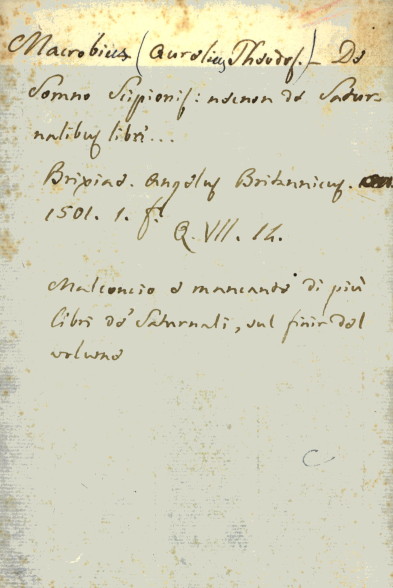 Macrobius (Aurelius Theodos.) – De
Somno Scipionis: necnon de Satur-
nalibus libri...
Brixiae. Angelus Britannicus.
1501. 1. f.
Q. VII. 14.
Malconcio e mancante di più
libri de' Saturnali, sul finir del
volume
C